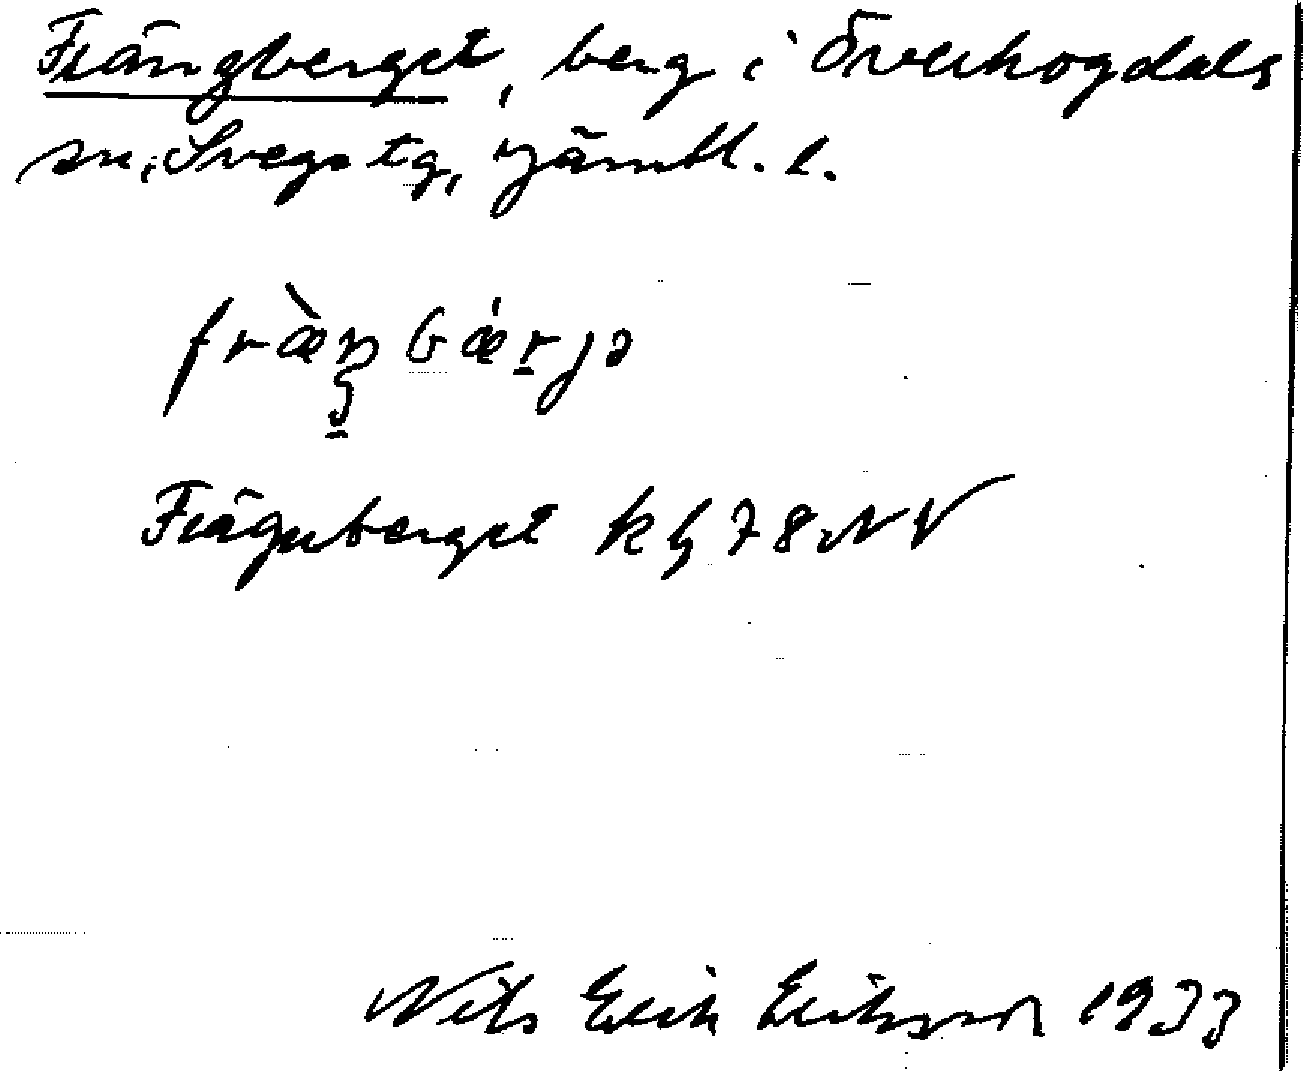 Frängberget, berg i Överhogdals
sn, Svegs tg, Jämtl. l.
fræ̀ŋbǽrjə
Frägnberget kg 78 NV
Nils Erik Eriksson 1933